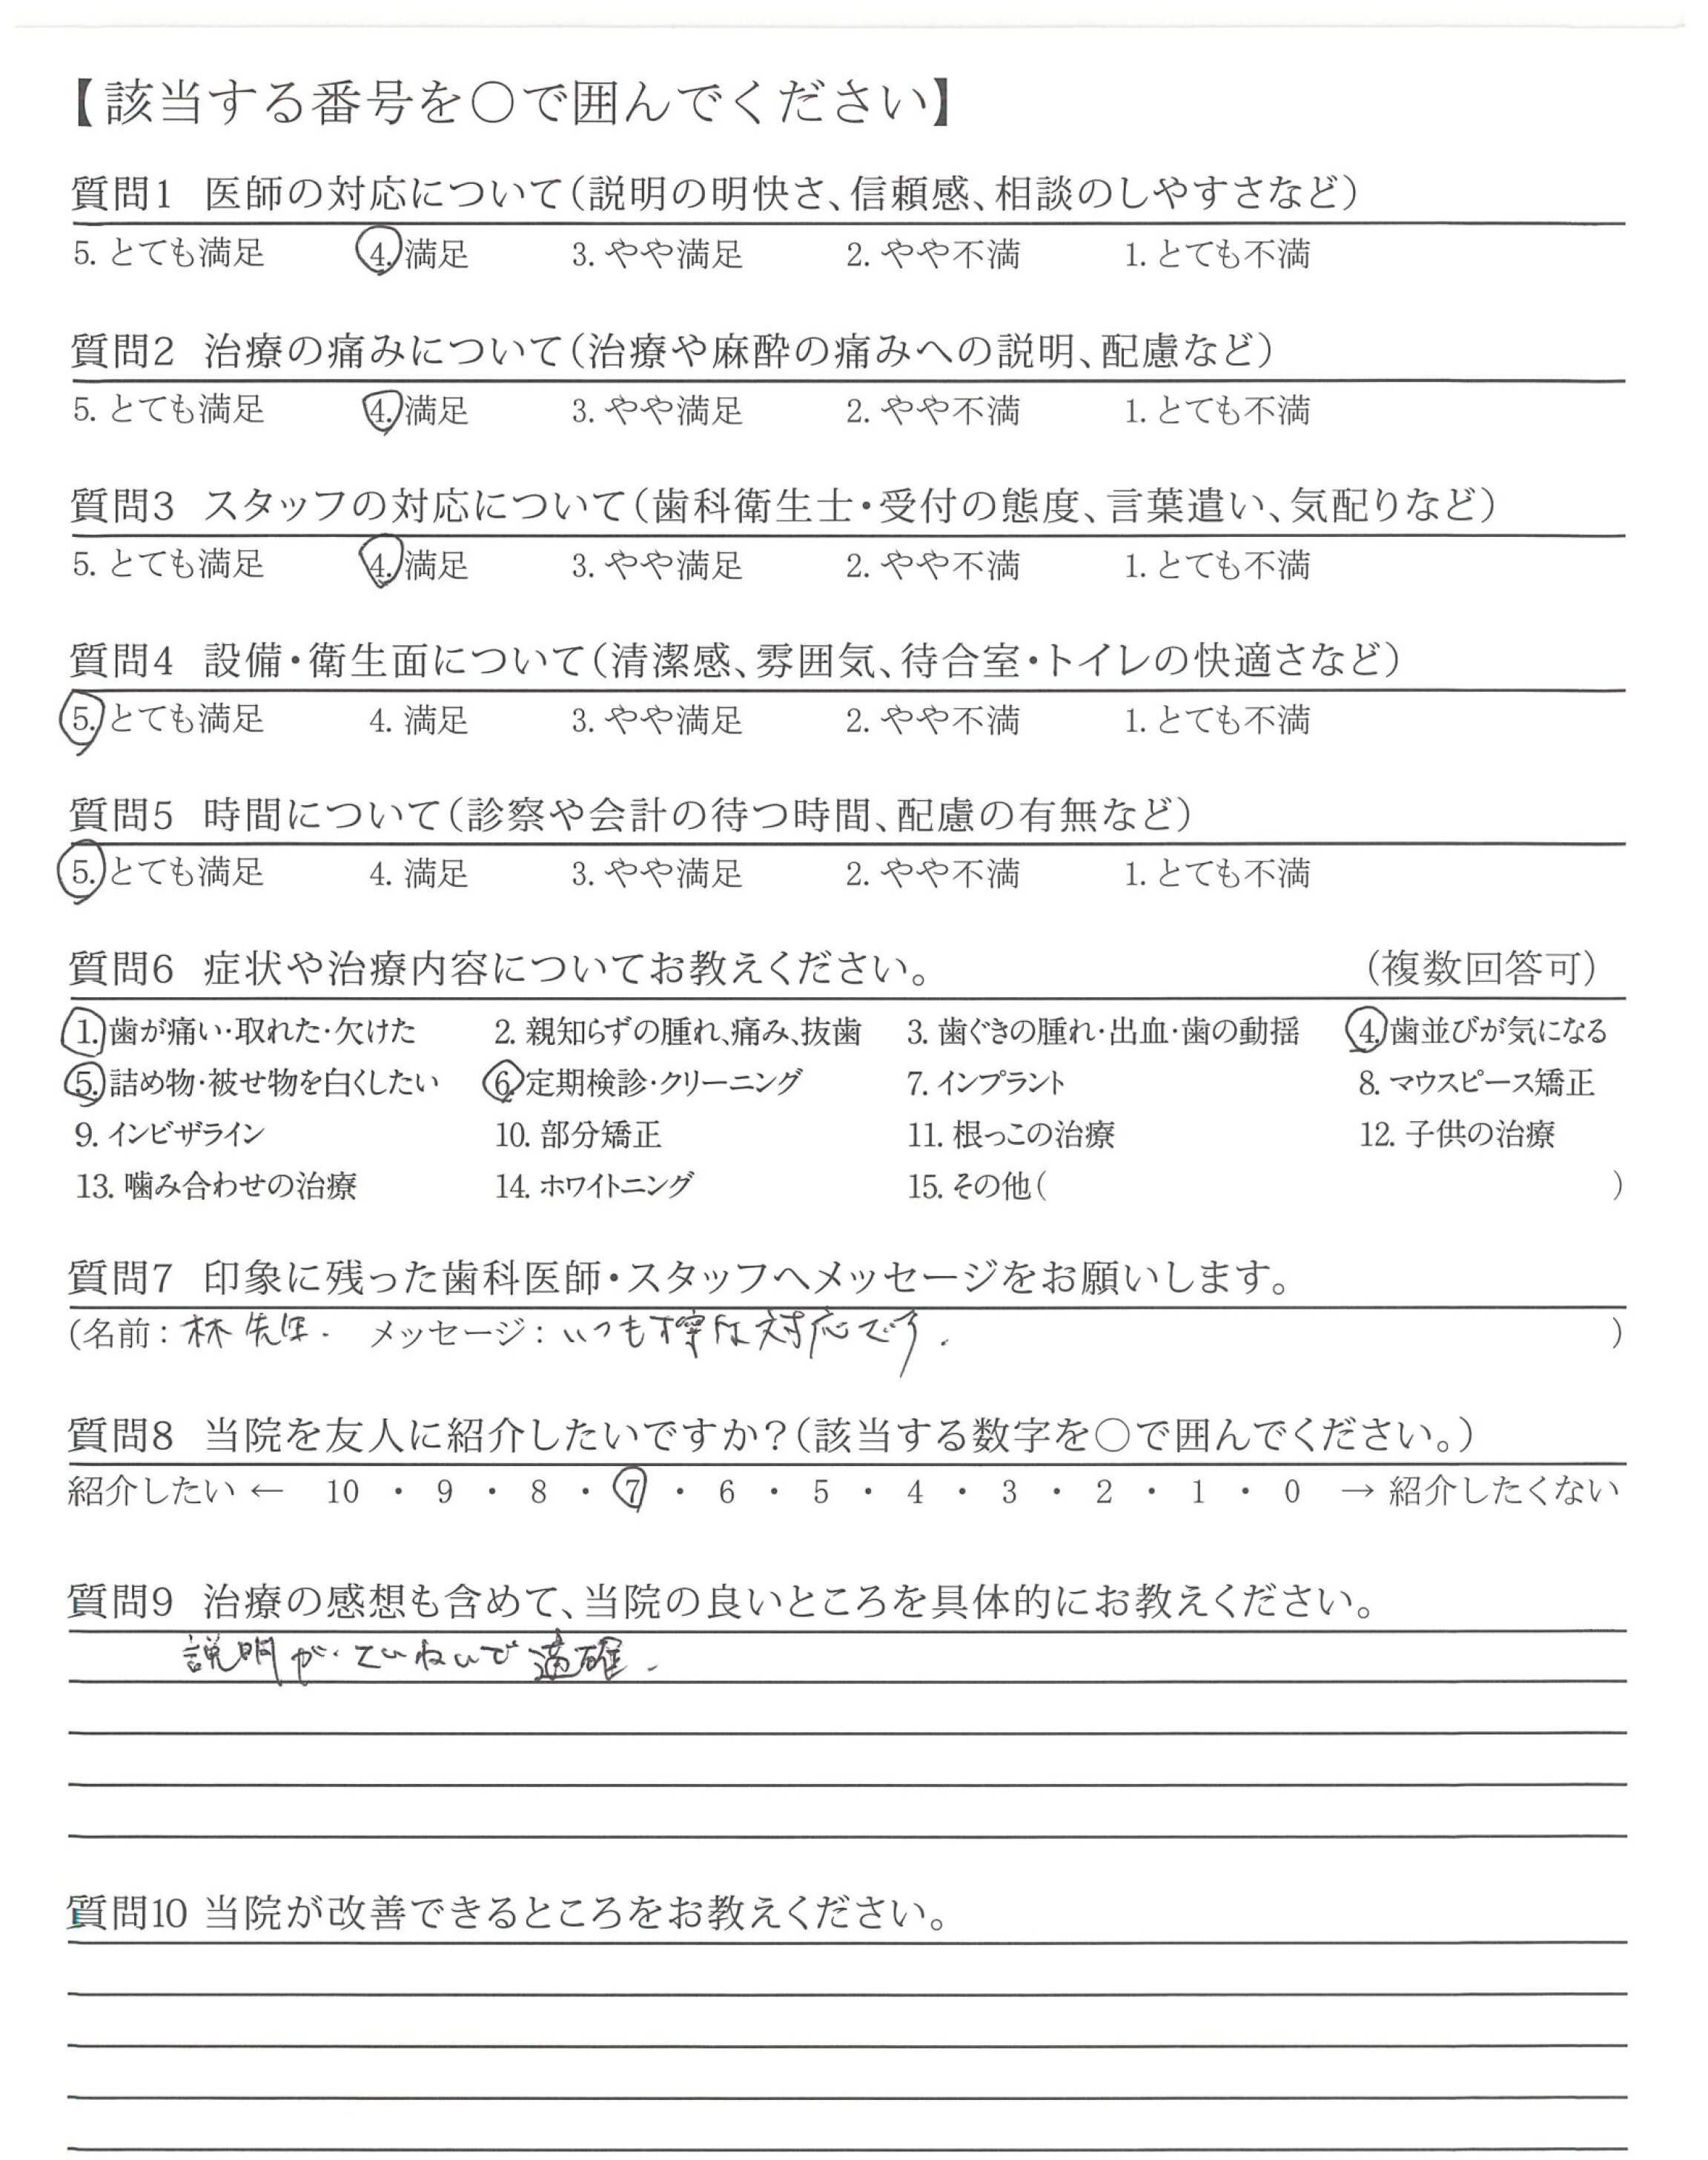 【該当する番号を○で囲んでください】
質問1 医師の対応について(説明の明快さ、信頼感、相談のしやすさなど)
5. とても満足 4. 満足 3. やや満足 2. やや不満 1. とても不満
質問2 治療の痛みについて(治療や麻酔の痛みへの説明、配慮など)
5. とても満足 4. 満足 3. やや満足 2. やや不満 1. とても不満
質問3 スタッフの対応について(歯科衛生士・受付の態度、言葉遣い、気配りなど)
5. とても満足 4. 満足 3. やや満足 2. やや不満 1. とても不満
質問4 設備・衛生面について(清潔感、雰囲気、待合室・トイレの快適さなど)
5. とても満足 4. 満足 3. やや満足 2. やや不満 1. とても不満
質問5 時間について(診察や会計の待つ時間、配慮の有無など)
5. とても満足 4. 満足 3. やや満足 2. やや不満 1. とても不満
質問6 症状や治療内容についてお教えください。 (複数回答可)
1. 歯が痛い・取れた・欠けた 2. 親知らずの腫れ、痛み、抜歯 3. 歯ぐきの腫れ・出血・歯の動揺 4. 歯並びが気になる
5. 詰め物・被せ物を白くしたい 6. 定期検診・クリーニング 7. インプラント 8. マウスピース矯正
9. インビザライン 10. 部分矯正 11. 根っこの治療 12. 子供の治療
13. 噛み合わせの治療 14. ホワイトニング 15. その他( )
質問7 印象に残った歯科医師・スタッフへメッセージをお願いします。
(名前: 林先生. メッセージ: いつも丁寧な対応です. )
質問8 当院を友人に紹介したいですか?(該当する数字を○で囲んでください。)
紹介したい ← 10 ・ 9 ・ 8 ・ 7 ・ 6 ・ 5 ・ 4 ・ 3 ・ 2 ・ 1 ・ 0 → 紹介したくない
質問9 治療の感想も含めて、当院の良いところを具体的にお教えください。
説明が、ていねいで適確.
質問10 当院が改善できるところをお教えください。